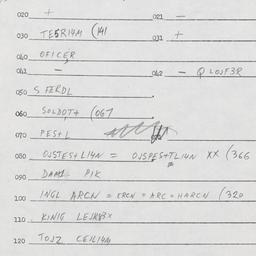 020 + 021 -
030 TESRI4M (141 031 +
040 OFICER
041 - 042 - Q LOST3R
050 S FERDL
060 SOLDOT+ (067
070 PES+L
080 OJSTES+LI4N = OJSPES+TLI4N XX (366
090 DAM2 PIK
100 INGL ARCN = KRCN = ARC = HARCN (320
110 KINIG
120 TOJZ CEILI4M